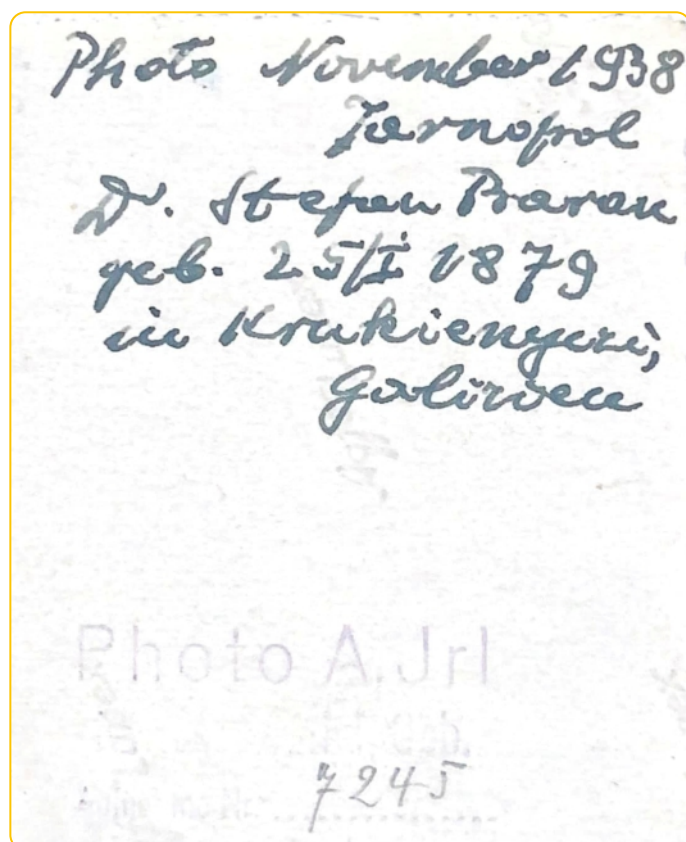 Photo November 1938
Tarnopol
Dr. Stefan Baran
geb. 25/I 1879
in Krukienyczi,
Galizien
Photo A. Jrl
7245